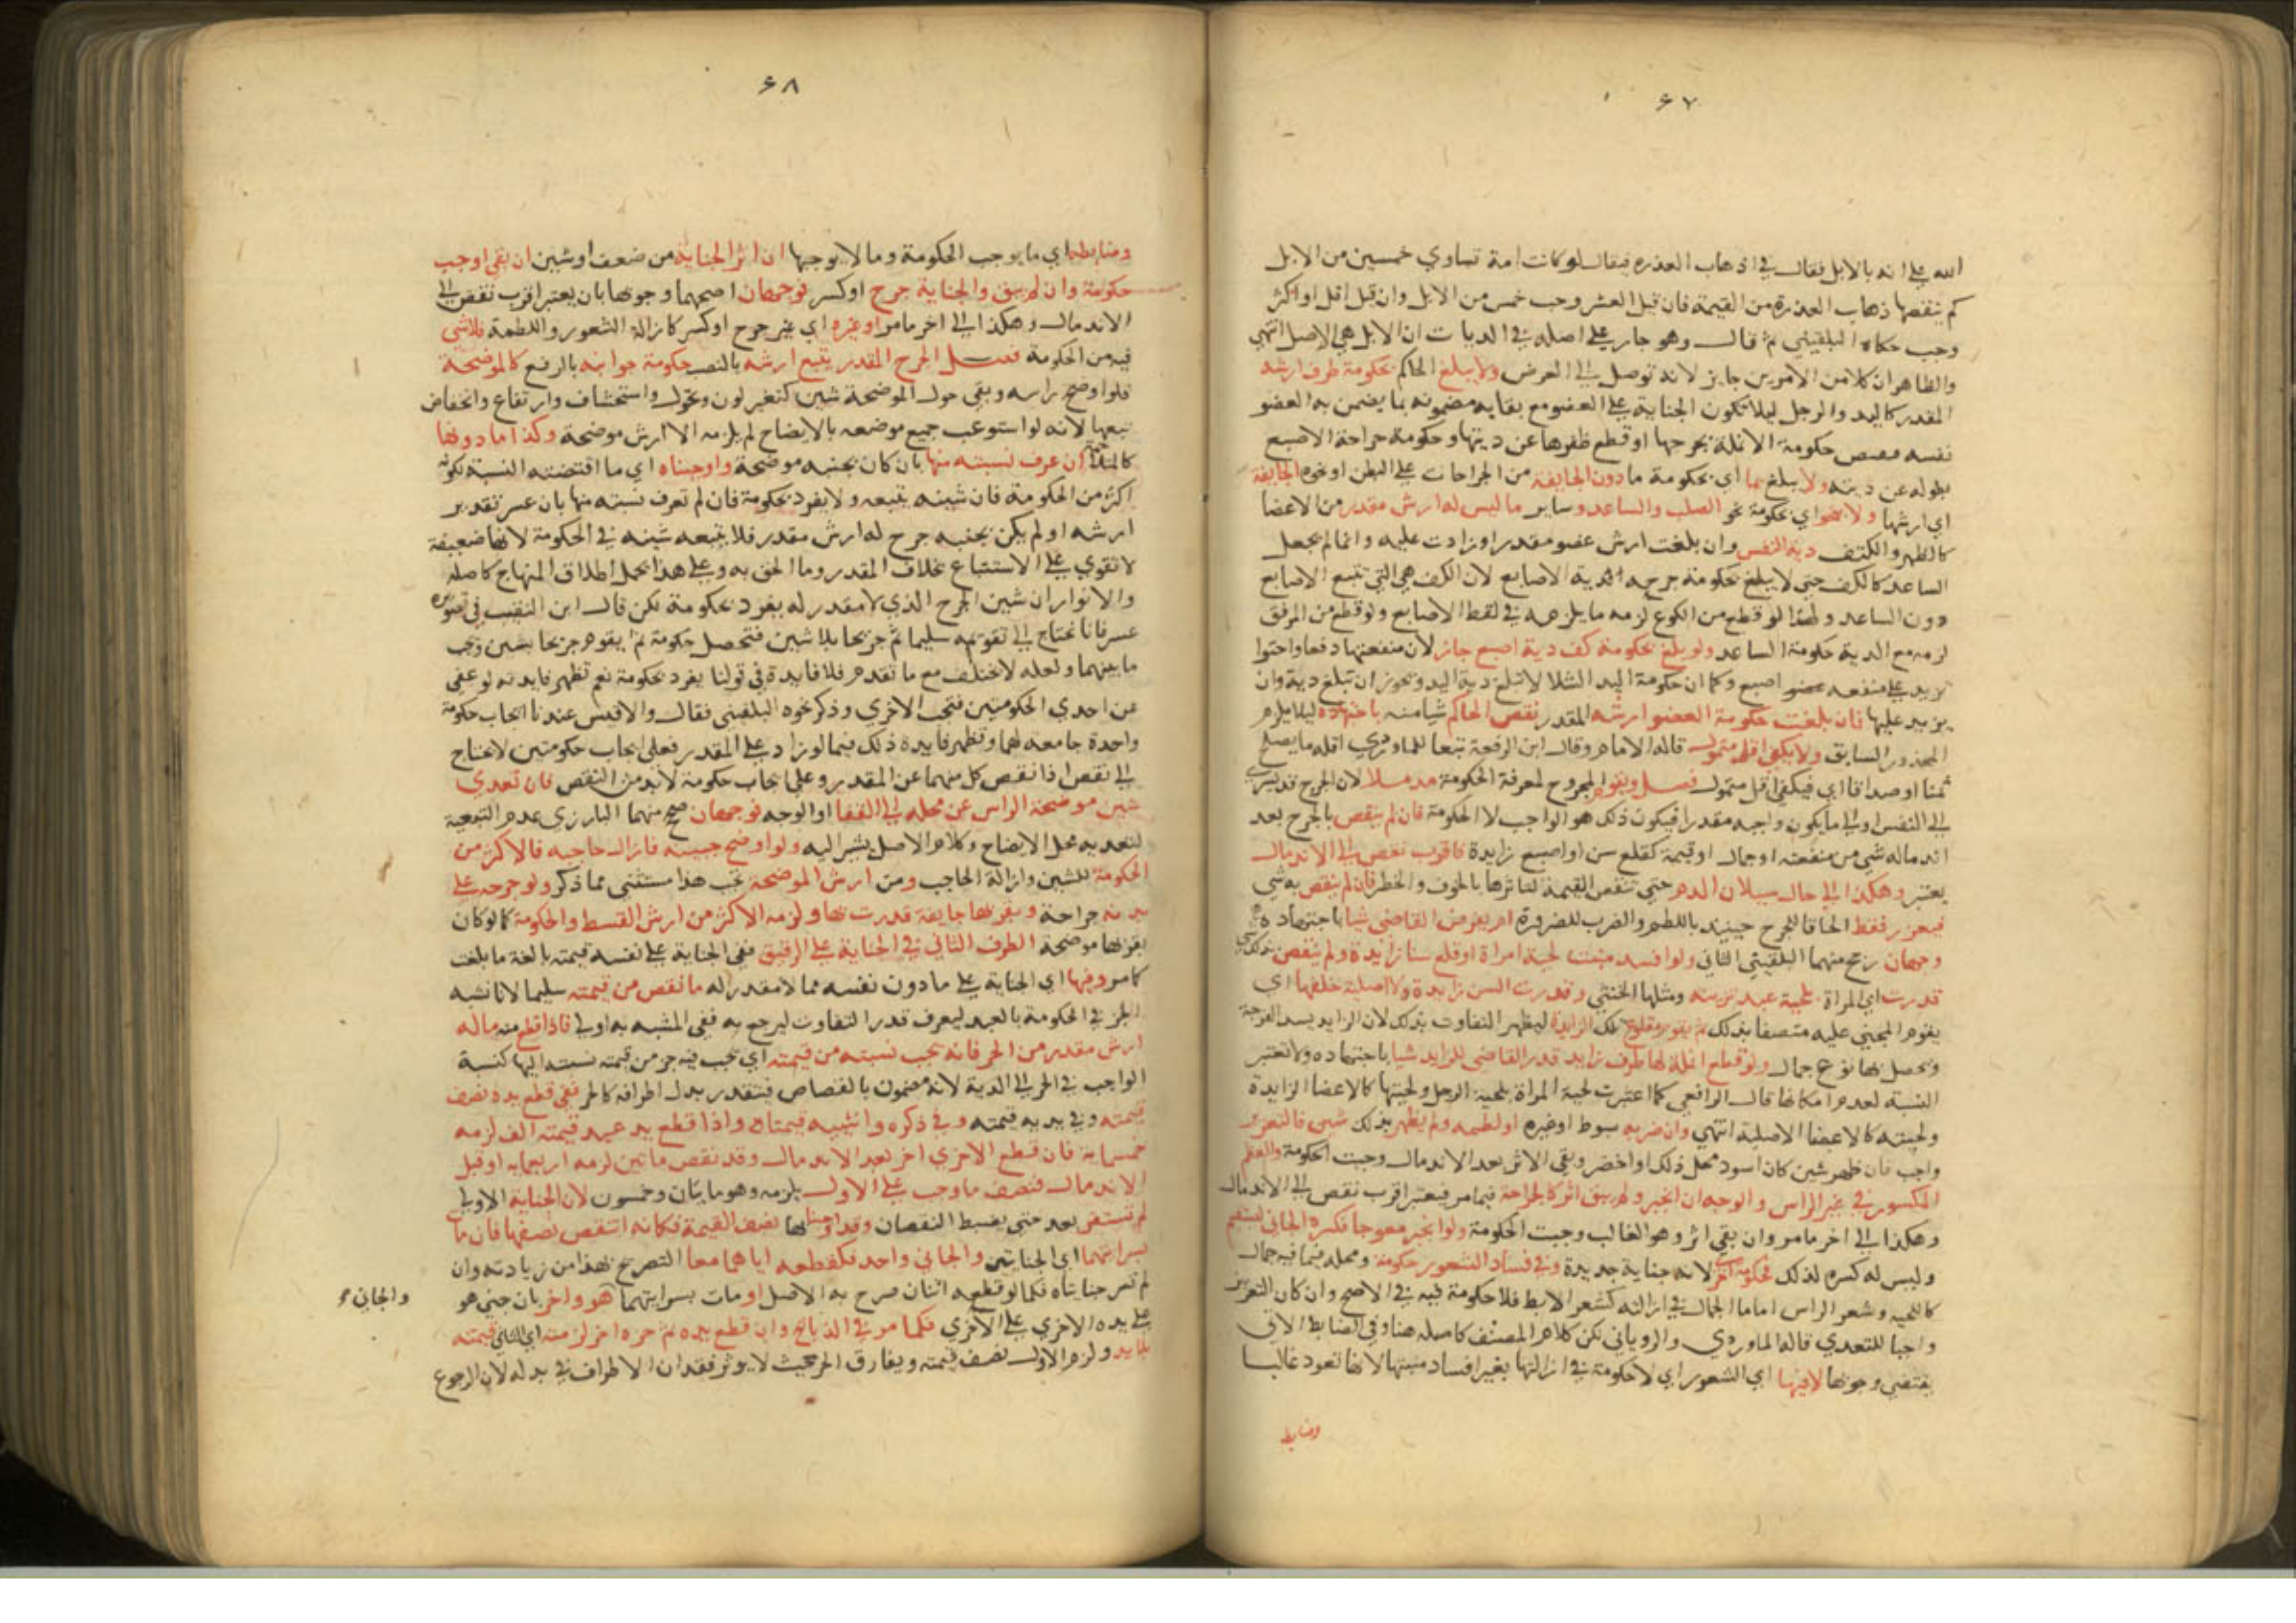 ٤٧
الله على انه بالابل فقال في اذهاب العذره فيقال لو كانت امة تساوي خمسين من الابل
كم ينقصها ذهاب العذرة من القيمة فان قيل العشر وجب خمس من الابل وان قيل اقل او اكثر
وجب حكاه البلقيني ثم قال وهو جار على اصله في الديات ان الابل هي الاصل انتهى
والظاهر ان كلا من الامرين جايز لانه توصل الى الغرض ولا يبلغ الحاكم بحكومة طرف ارشه
المقدر كاليد والرجل ليلا تكون الجناية على العضو مع بقايه مضمونه بما يضمن به العضو
نفسه فينقص حكومة الانملة بجرحها او قطع ظفرها عن ديتها وحكومة جراحة الاصبع
بطوله عن ديته ولا يبلغ بما اي بحكومة ما دون الجايفة من الجراحات على البطن او نحوه الجايفة
اي ارشها ولا بنحو اي بحكومة نحو الصلب والساعد وساير ما ليس له ارش مقدر من الاعضا
كالظهر والكتف دية النفس وان بلغت ارش عضو مقدر او زادت عليه وانما لم يجعل
الساعد كالكف حتى لا يبلغ بحكومة جرحه دية الاصابع لان الكف هي التي تتبع الاصابع
دون الساعد ولهذا لو قطع من الكوع لزمه ما يلزمه في لقط الاصابع ولو قطع من المرفق
لزمه مع الدية حكومة الساعد ولو بلغ بحكومة كف دية اصبع جاز لان منفعتها دفعا واحتوا
تزيد على منفعة اصبع وكما ان حكومة اليد الشلا لا تبلغ دية اليد ويجوز ان تبلغ دية وان
يزيد عليها فان بلغت حكومة العضو ارشه المقدر نقص الحاكم شيا منه باجتهاده ليلا يلزم
المحذور السابق ولا يكفي اقل متمول قاله الامام وقال ابن الرفعة تبعا للماوردي اقله ما يصلح
ثمنا او صداقا اي فيكفي اقل متمول فصل ويقوم المجروح لمعرفة الحكومة مندملا لان الجرح قد يسري
الى النفس او الى ما يكون واجبه مقدرا فيكون ذلك هو الواجب لا الحكومة فان لم ينقص بالجرح بعد
اندماله شي من منفعته او جمال او قيمة كقلع سن او اصبع زايدة فاقرب نقص الى الاندمال
يعتبر وهكذا الى حال سيلان الدم حتى تنقص القيمة لتاثرها بالخوف والخطر فان لم ينقص به شي
فيعزر فقط الحاقا للجرح حينيذ باللطم والضرب للضرورة ام يفرض القاضي شيا باجتهاده
وجهان رجح منهما البلقيني الثاني ولو افسد منبت لحية امراة او قلع سنا زايدة ولم ينقص بذلك شي
قدرت اي المراة لحية عبد تزينه ومثلها الخنثى وقدرت السن زايدة ولا اصلية خلفها اي
يقوم المجني عليه متصفا بذلك ثم يقوم مقلوع تلك الزايدة ليظهر التفاوت بذلك لان الزايد يسد الفرجة
ويحصل بها نوع جمال ولو قطع انملة لها طرف زايد قدر القاضي للزايد شيا باجتهاده ولا تعتبر
النسبة لعدم امكانها قال الرافعي كما اعتبرت لحية المراة بلحية الرجل ولحيتها كالاعضا الزايدة
ولحيته كالاعضا الاصلية انتهى وان ضربه بسوط او غيره او لطمه ولم يظهر بذلك شين فالتعزير
واجب فان ظهر شين كان اسود محل ذلك او اخضر وبقي الاثر بعد الاندمال وجبت الحكومة والعظم
المكسور في غير الراس والوجه ان انجبر ولم يبق اثر كالجراحة فيما مر فيعتبر اقرب نقص الى الاندمال
وهكذا الى اخر ما مر وان بقي اثر وهو الغالب وجبت الحكومة ولو انجبر معوجا فكسره الجاني ليستقيم
وليس له كسره لذلك فحكومة اخرى لانه جناية جديدة وفي فساد الشعور حكومة ومحله فيما فيه جمال
كاللحيه وشعر الراس اما ما الجمال في ازالته كشعر الابط فلا حكومة فيه في الاصح وان كان التعزير
واجبا للتعدي قاله الماوردي والروياني لكن كلام المصنف كاصله هنا وفي الضابط الاتي
يقتضي وجوبها لا فيها اي الشعور اي لا حكومة في ازالتها بغير افساد منبتها لانها تعود غالبا
وضابط
٤٨
وضابطه اي ما يوجب الحكومة وما لا يوجبها ان اثر الجناية من ضعف او شين ان بقي اوجب
حكومة وان لم يبق والجناية جرح او كسر فوجهان اصحهما وجوبها بان يعتبر اقرب نقص الى
الاندمال وهكذا الى اخر ما مر او غيره اي غير جرح او كسر كازالة الشعور واللطمة فلا شي
فيه من الحكومة فصل الجرح المقدر يتبع ارشه بالنصب حكومة جوانبه بالرفع كالموضحة
فلو اوضح راسه وبقي حول الموضحة شين كتغير لون ونحول واستحشاف وارتفاع وانخفاض
تبعها لانه لو استوعب جميع موضعه بالايضاح لم يلزمه الا ارش موضحة وكذا ما دونها
كالمتلاحمة ان عرف نسبته منها بان كان بجنبه موضحة واوجبناه اي ما اقتضته النسبة لكونه
اكثر من الحكومة فان شينه يتبعه ولا يفرد بحكومة فان لم تعرف نسبته منها بان عسر تقدير
ارشه او لم يكن بجنبه جرح له ارش مقدر فلا يتبعه شينه في الحكومة لانها ضعيفة
لا تقوى على الاستتباع بخلاف المقدر وما الحق به وعلى هذا يحمل اطلاق المنهاج كاصله
والانوار ان شين الجرح الذي لا مقدر له يفرد بحكومة لكن قال ابن النقيب في تصويره
عسر فانا نحتاج الى تقويمه سليما ثم جريحا بلا شين فتحصل حكومة ثم يقوم جريحا بشين وتجب
ما بينهما ولعله لا يختلف مع ما تقدم فلا فايدة في قولنا يفرد بحكومة نعم تظهر فايدته لو عفى
عن احدى الحكومتين فتجب الاخرى وذكر نحوه البلقيني فقال والاقيس عندنا ايجاب حكومة
واحدة جامعة لهما وتظهر فايدة ذلك فيما لو زاد على المقدر فعلى ايجاب حكومتين لا يحتاج
الى نقص اذا نقص كل منهما عن المقدر وعلى ايجاب حكومة لا بد من النقص فان تعدى
شين موضحة الراس عن محله الى القفا او الوجه فوجهان صحح منهما البارزي عدم التبعية
لتعديه محل الايضاح وكلام الاصل يشير اليه ولو اوضح جبينه فازال حاجبه فالاكثر من
الحكومة للشين وازالة الحاجب ومن ارش الموضحة تجب هذا مستثنى مما ذكر ولو جرحه على
بدنه جراحة وبقربها جايفة قدرت بها ولزمه الاكثر من ارش القسط والحكومة كما لو كان
بقربها موضحة الطرف الثاني في الجناية على الرقيق ففي الجناية على نفسه قيمته بالغة ما بلغت
كما مر وفيها اي الجناية على ما دون نفسه مما لا مقدر له ما نقص من قيمته سليما لانا نشبه
الحر في الحكومة بالعبد ليعرف قدر التفاوت ليرجع به ففي المشبه به اولى فاذا قطع منه ما له
ارش مقدر من الحر فانه تجب نسبته من قيمته اي تجب فيه جز من قيمته نسبته اليها كنسبة
الواجب في الحر الى الدية لانه مضمون بالقصاص فيتقدر بدل اطرافه كالحر ففي قطع يده نصف
قيمته وفي يديه قيمته وفي ذكره وانثييه قيمتان واذا قطع يد عبد قيمته الف لزمه
خمسمايه فان قطع الاخرى اخر بعد الاندمال وقد نقص مائتين لزمه اربعمايه او قبل
الاندمال فنصف ما وجب على الاول يلزمه وهو مايتان وخمسون لان الجناية الاولى
لم تستقر بعد حتى يضبط النقصان وقد اوجبنا بها نصف القيمة فكانه انتقص نصفها فان مات
بسرايتهما اي الجنايتين والجاني واحد فكقطعه اياهما معا التصريح بهذا من زيادته وان
لم تسر جنايتاه فكما لو قطعه اثنان صرح به الاصل او مات بسرايتهما هو واخر بان جنى هو
والجاني
على يده الاخرى على الاخرى فكما مر في الذبائح وان قطع يده ثم حره اخر لزمته اي الثاني قيمته
بلا يد ولزم الاول نصف قيمته ويفارق الحر حيث لا يوثر فقدان الاطراف في بدله لان الرجوع